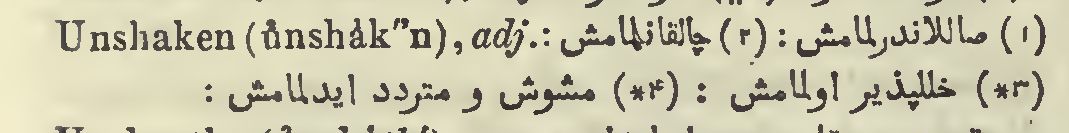 Unshaken (ůnshák″n), adj.: (١) صاللاندرلمامش : (٢) چالقانلمامش :
(*٣) خللپذیر اولمامش : (*۴) مشوش و متردد ایدلمامش :